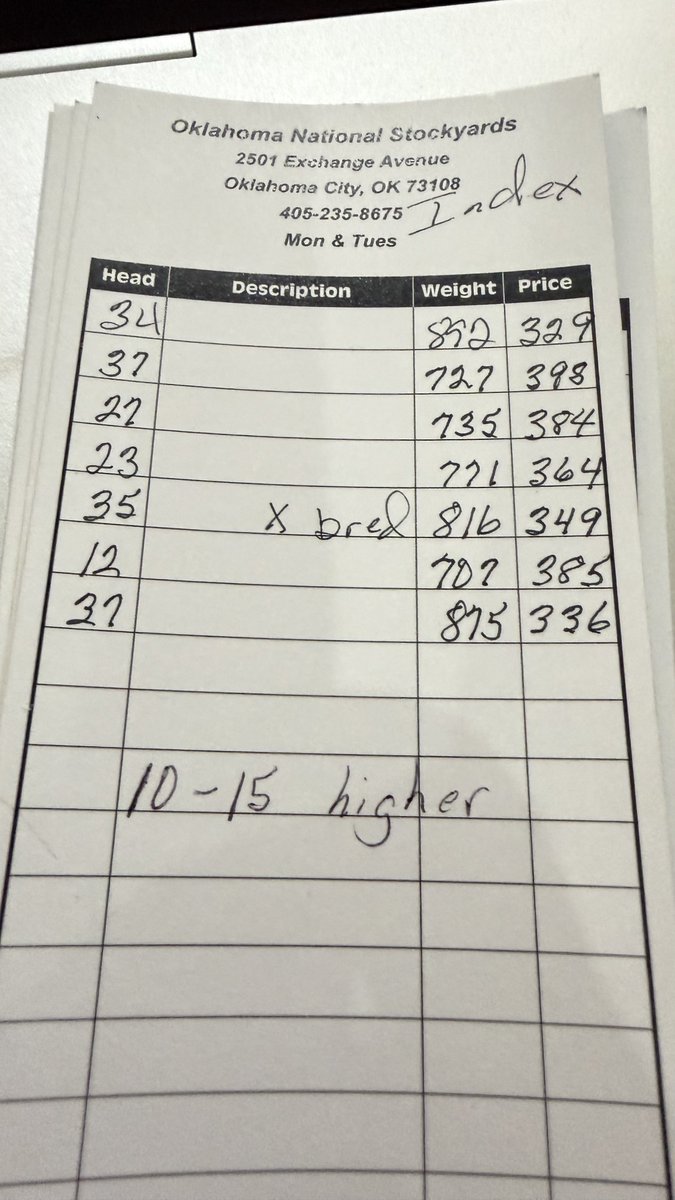 Oklahoma National Stockyards
2501 Exchange Avenue
Oklahoma City, OK 73108
405-235-8675 Index
Mon & Tues
Head Description Weight Price
34 892 329
37 727 398
27 735 384
23 771 364
35 X bred 816 349
12 707 385
37 875 336
10-15 higher